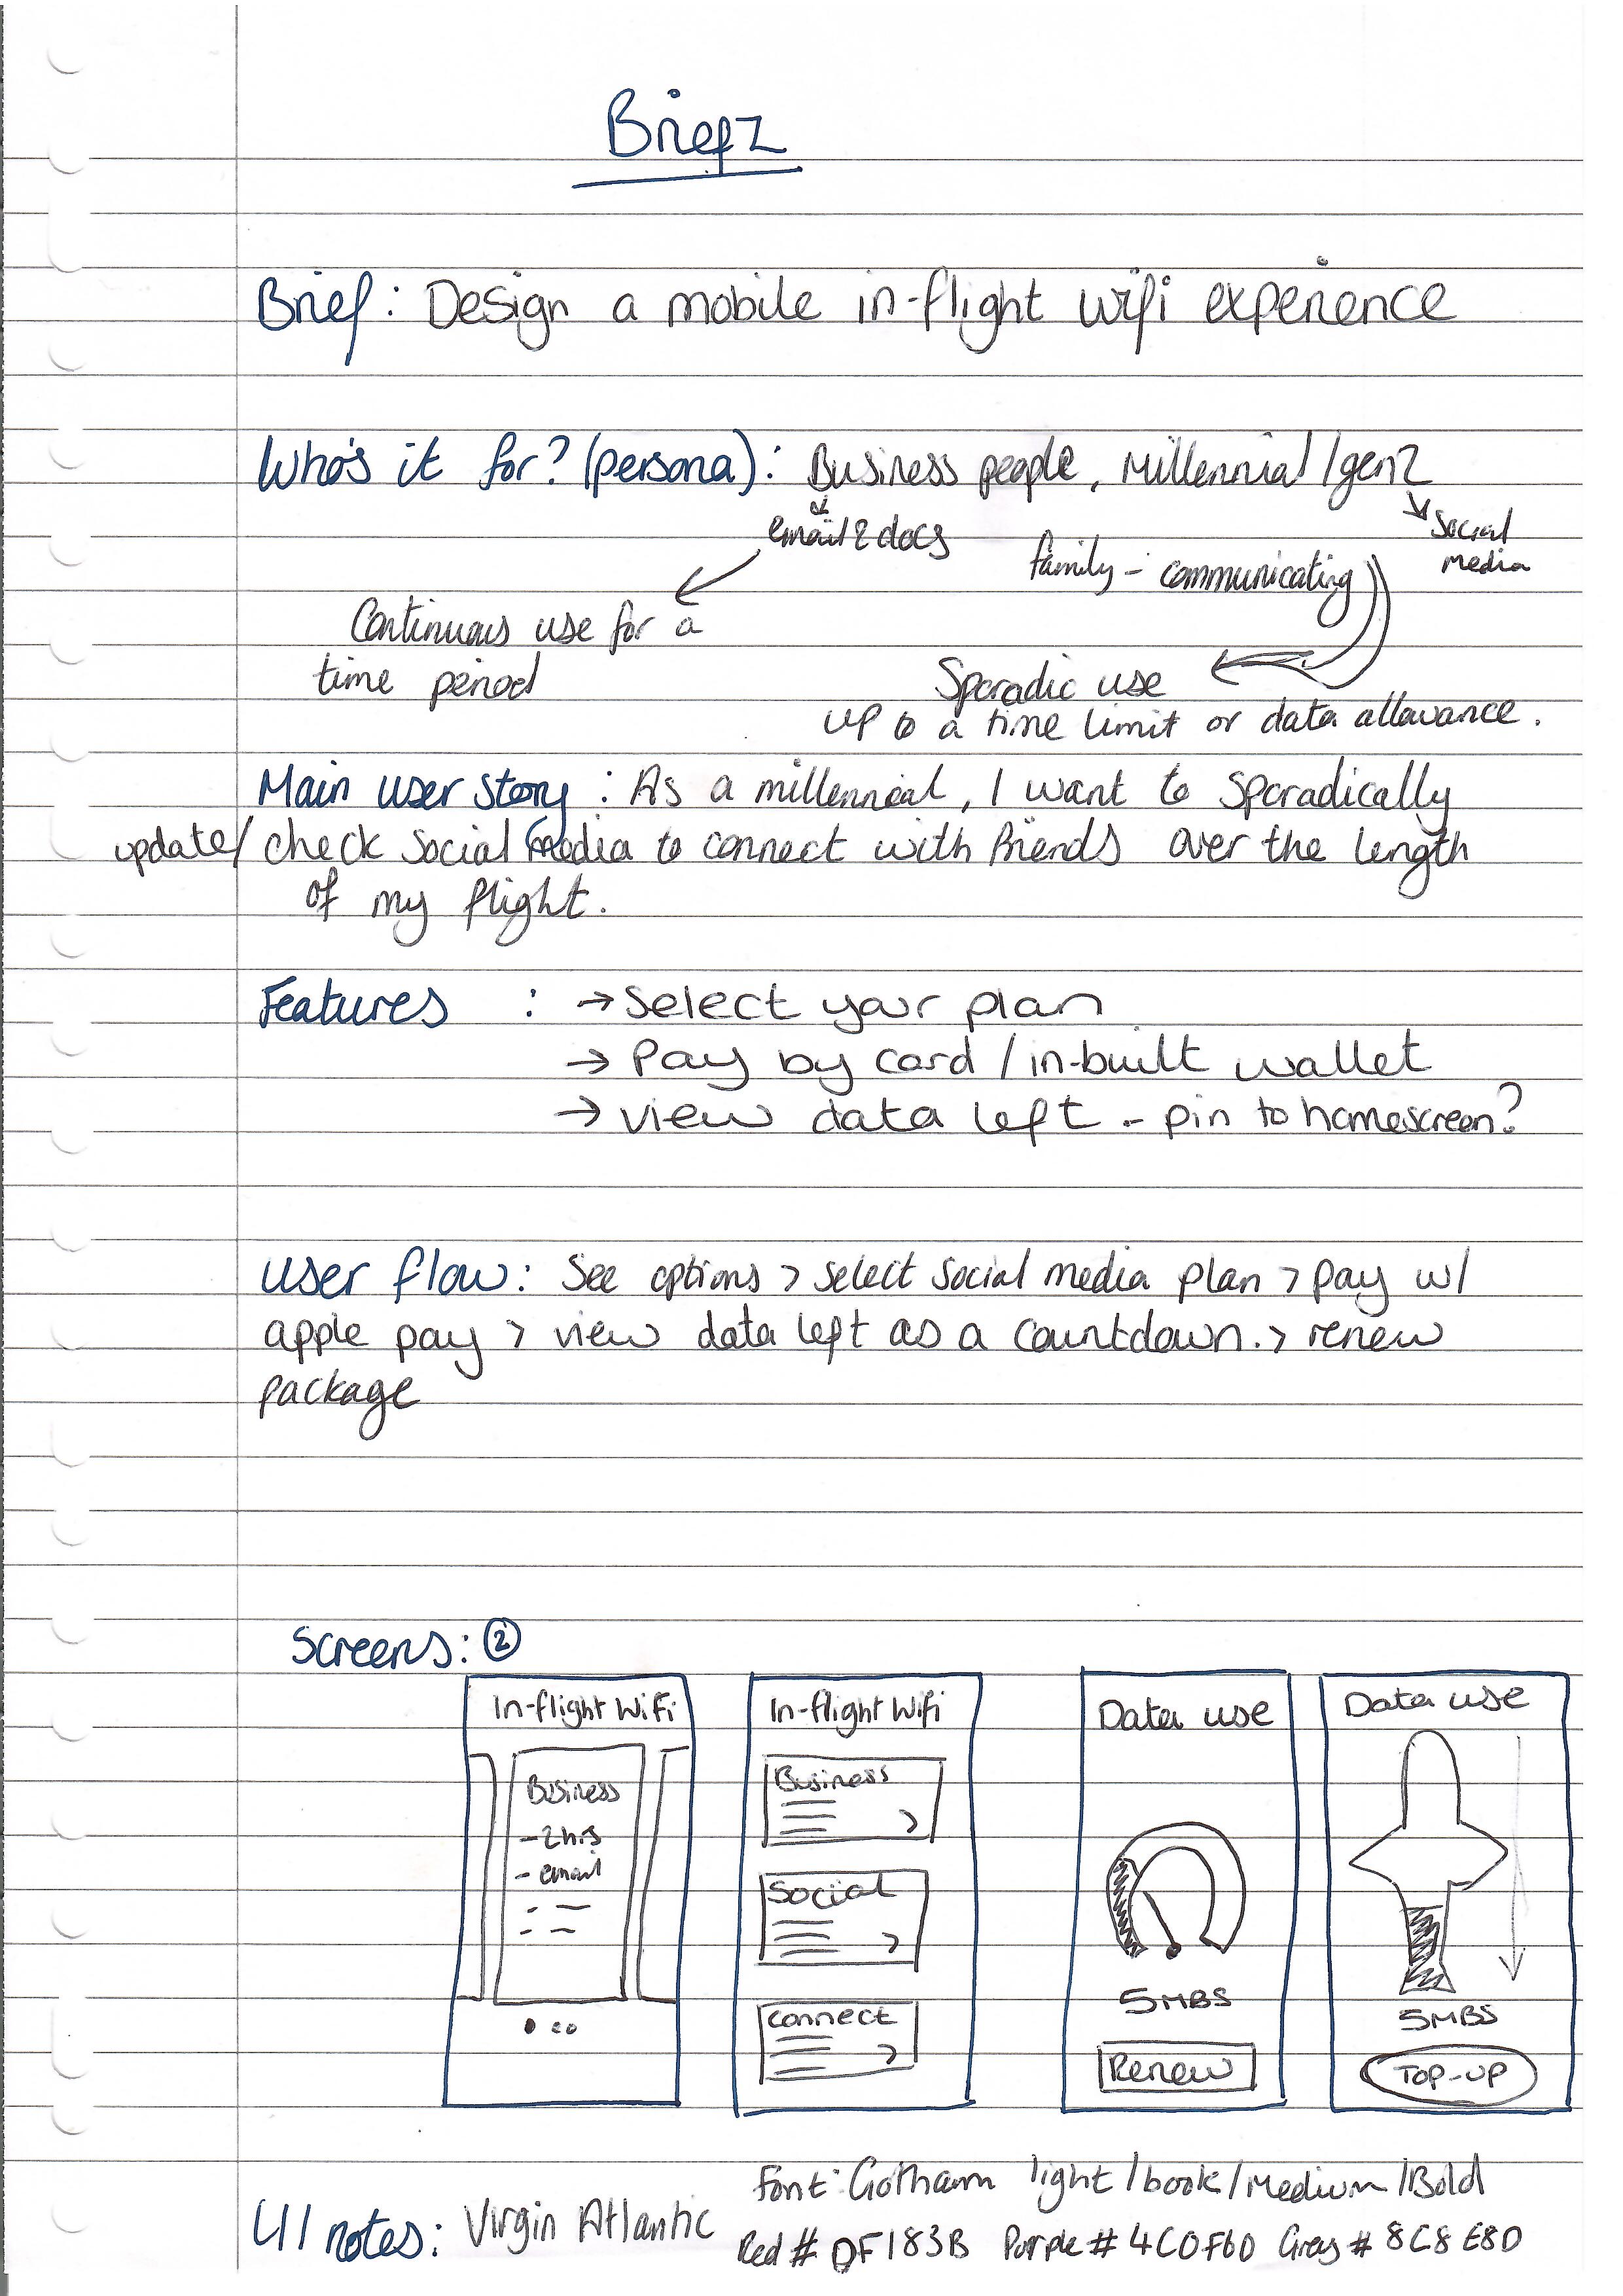 Briefz
Brief: Design a mobile in-flight wifi experience
Who's it for? (persona): Business people, Millennial/genZ
email & docs
Social
media
family - communicating
Continuous use for a
time period
Sporadic use
up to a time limit or data allowance.
Main user story: As a millennial, I want to sporadically
update/check social media to connect with friends over the length
of my flight.
Features : → Select your plan
→ Pay by card / in-built wallet
→ view data left - pin to homescreen?
User flow: See options > select social media plan > pay w/
apple pay > view data left as a countdown. > renew
package
Screens: ②
In-flight WiFi
Business
- 2hrs
- email
In-flight Wifi
Business
Social
Connect
Data use
5MBS
Renew
Data use
5MBS
TOP-UP
Font: Gotham light/book/Medium/Bold
UI notes: Virgin Atlantic
Red # DF183B Purple # 4C0F60 Grey # 8C8E8D